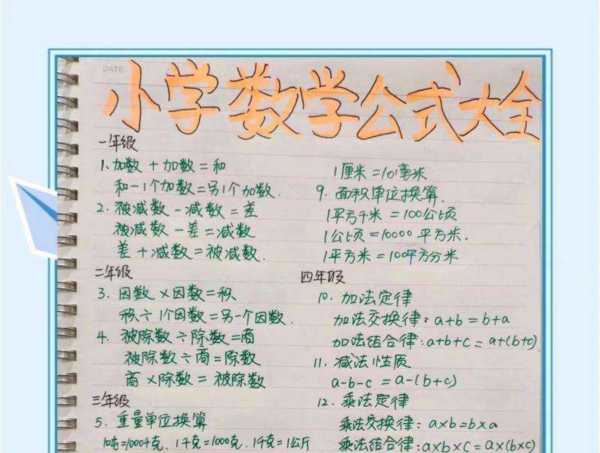 DATE
小学数学公式大全
一年级
1.加数+加数=和
和-1个加数=另1个加数.
2.被减数-减数=差
被减数-差=减数
差+减数=被减数.
二年级
3.因数×因数=积
积÷1个因数=另一个因数.
4.被除数÷除数=商
被除数÷商=除数
商×除数=被除数
三年级
5.重量单位换算
1千克=1000克,1千克=1公斤
1厘米=10毫米
9.面积单位换算.
1平方千米=100公顷
1公顷=10000平方米.
1平方米=100平方分米
四年级
10.加法定律
加法交换律:a+b=b+a
加法结合律:a+b+c=a+(b+c)
11.减法性质
a-b-c=a-(b+c)
12.乘法定律
乘法交换律:a×b=b×a
乘法结合律:a×b×c=a×(b×c)